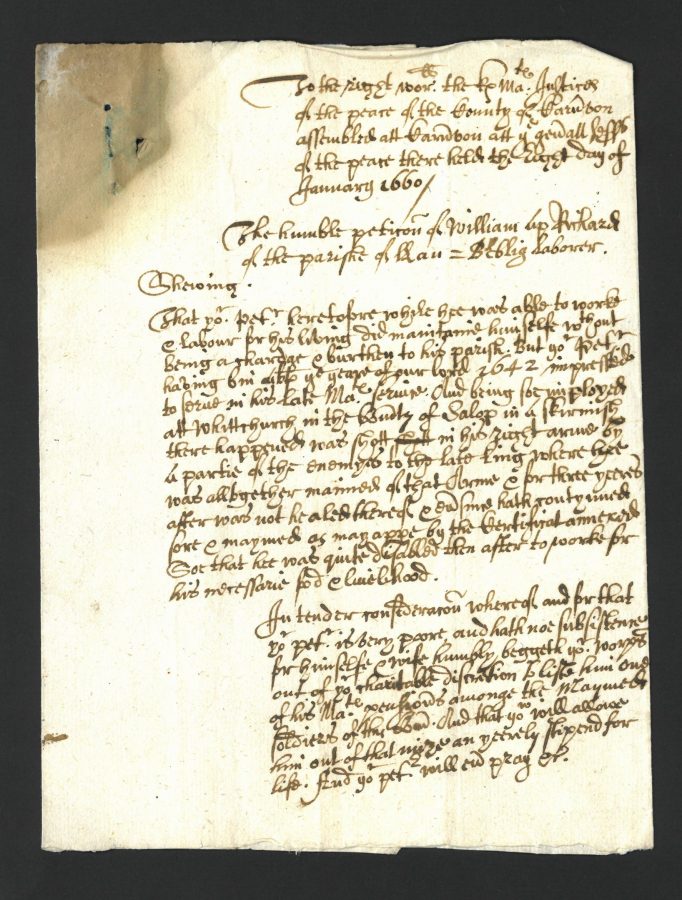 To the right wor:ll the Ks Ma:ties Justices
of the peace of the County of Carn̄von
assembled att Carn̄von att ye gen̄all Sesss
of the peace there held the Eight day of
January 1660/
The humble peticoū of William ap Richard
of the parishe of Llan=Beblig Laborer.
Shewing.
That yor. petr. heretofore while hee was able to worke
& labour for his living did maintaine himselfe wthout
being a chardge & burthen to his parish. But yor Petr
having bin ye yeare of our lord 1642 impressed
to serve in his late Ma:ts service. And being soe imployed
att Whittchurch in the County of Salop in a skirmish
there happened was shott in his right arme by
a partie of the enemyes to the late king where hee
was alltogether maimed of that Arme & for three yeeres
after was not healed thereof & ev̄ since hath contynued
sore & maymed as may appe by the Certificat annexed
Soe that hee was quite disabled then after to worke for
his necessarie food & livelihood.
In tender consideracoū whereof and for that
yor petr. is very poore and hath noe subsistence
for himselfe & wife humbly beggeth yor. worpps
out of yor charitable discretion to list him one
of his Ma:ts pensioners amonge the Maymed
soldiers of this Coū. And that yor will allowe
him out of that mize an yeerely stipend for
life. And yor petr. will ev̄ pray &c.